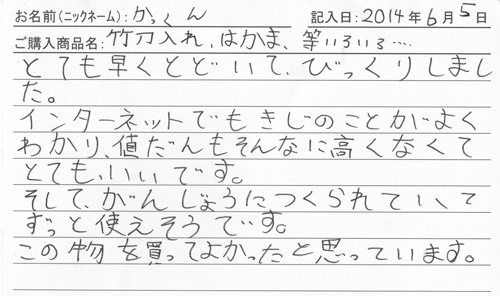 お名前(ニックネーム):かっくん 記入日:2014年6月5日
ご購入商品名:竹刀入れ、はかま、等いろいろ‥‥
とても早くとどいて、びっくりしまし
た。
インターネットでもきじのことがよく
わかり、値だんもそんなに高くなくて
とても、いいです。
そして、がんじょうにつくられていて
ずっと使えそうです。
この物を買ってよかったと思っています。